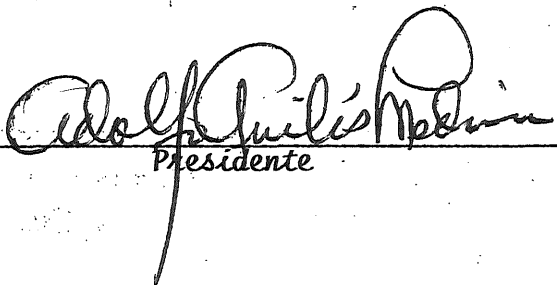 Adolfo Quilís Medina
Presidente